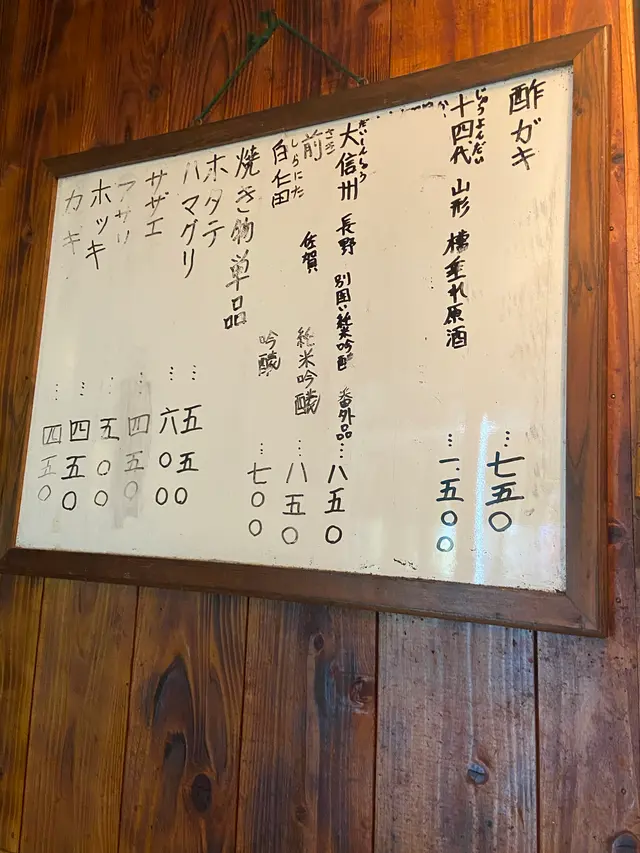 酢ガキ … 七五〇
じゅうよんだい
十四代 山形 槽垂れ原酒 … 一、五〇〇
だいしんしゅう
大信州 長野 別囲い純米吟醸 番外品 … 八五〇
さき
前 佐賀 純米吟醸 … 八五〇
しらにた
白仁田 吟醸 … 七〇〇
焼き物単品
ホタテ … 五五〇
ハマグリ … 六〇〇
サザエ … 四五〇
アサリ … 五〇〇
ホッキ … 四五〇
カキ … 四五〇